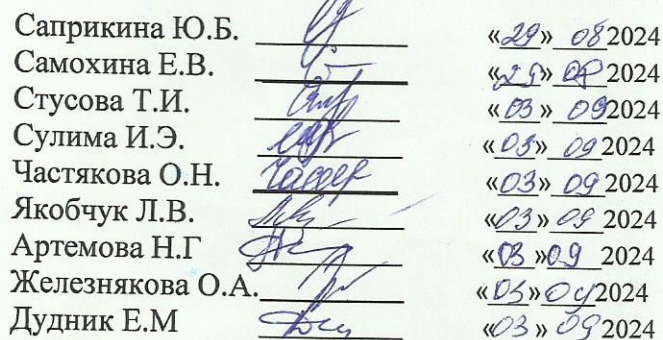 Саприкина Ю.Б. «29» 08 2024
Самохина Е.В. «29» 08 2024
Стусова Т.И. «03» 09 2024
Сулима И.Э. «03» 09 2024
Частякова О.Н. «03» 09 2024
Якобчук Л.В. «03» 09 2024
Артемова Н.Г «03» 09 2024
Железнякова О.А. «03» 09 2024
Дудник Е.М «03» 09 2024